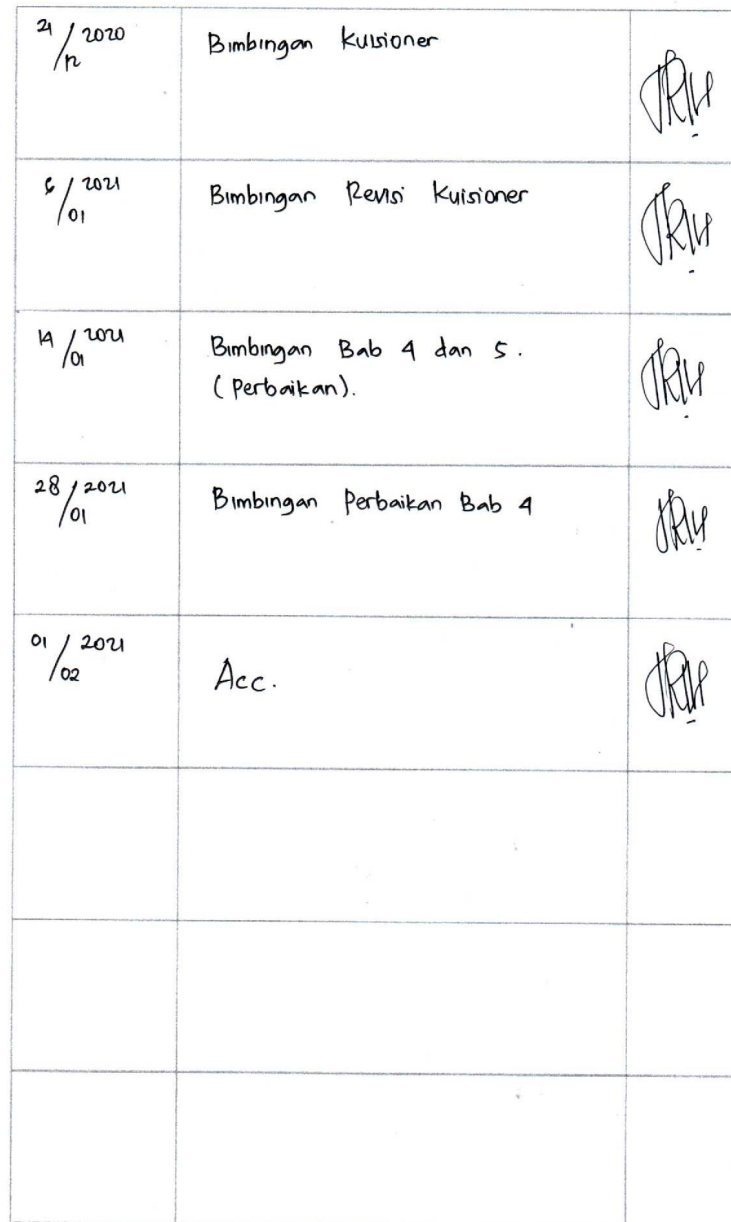 21/12 2020 Bimbingan Kuisioner
6/01 2021 Bimbingan Revisi Kuisioner
14/01 2021 Bimbingan Bab 4 dan 5.
(Perbaikan).
28/01 2021 Bimbingan Perbaikan Bab 4
01/02 2021 Acc.